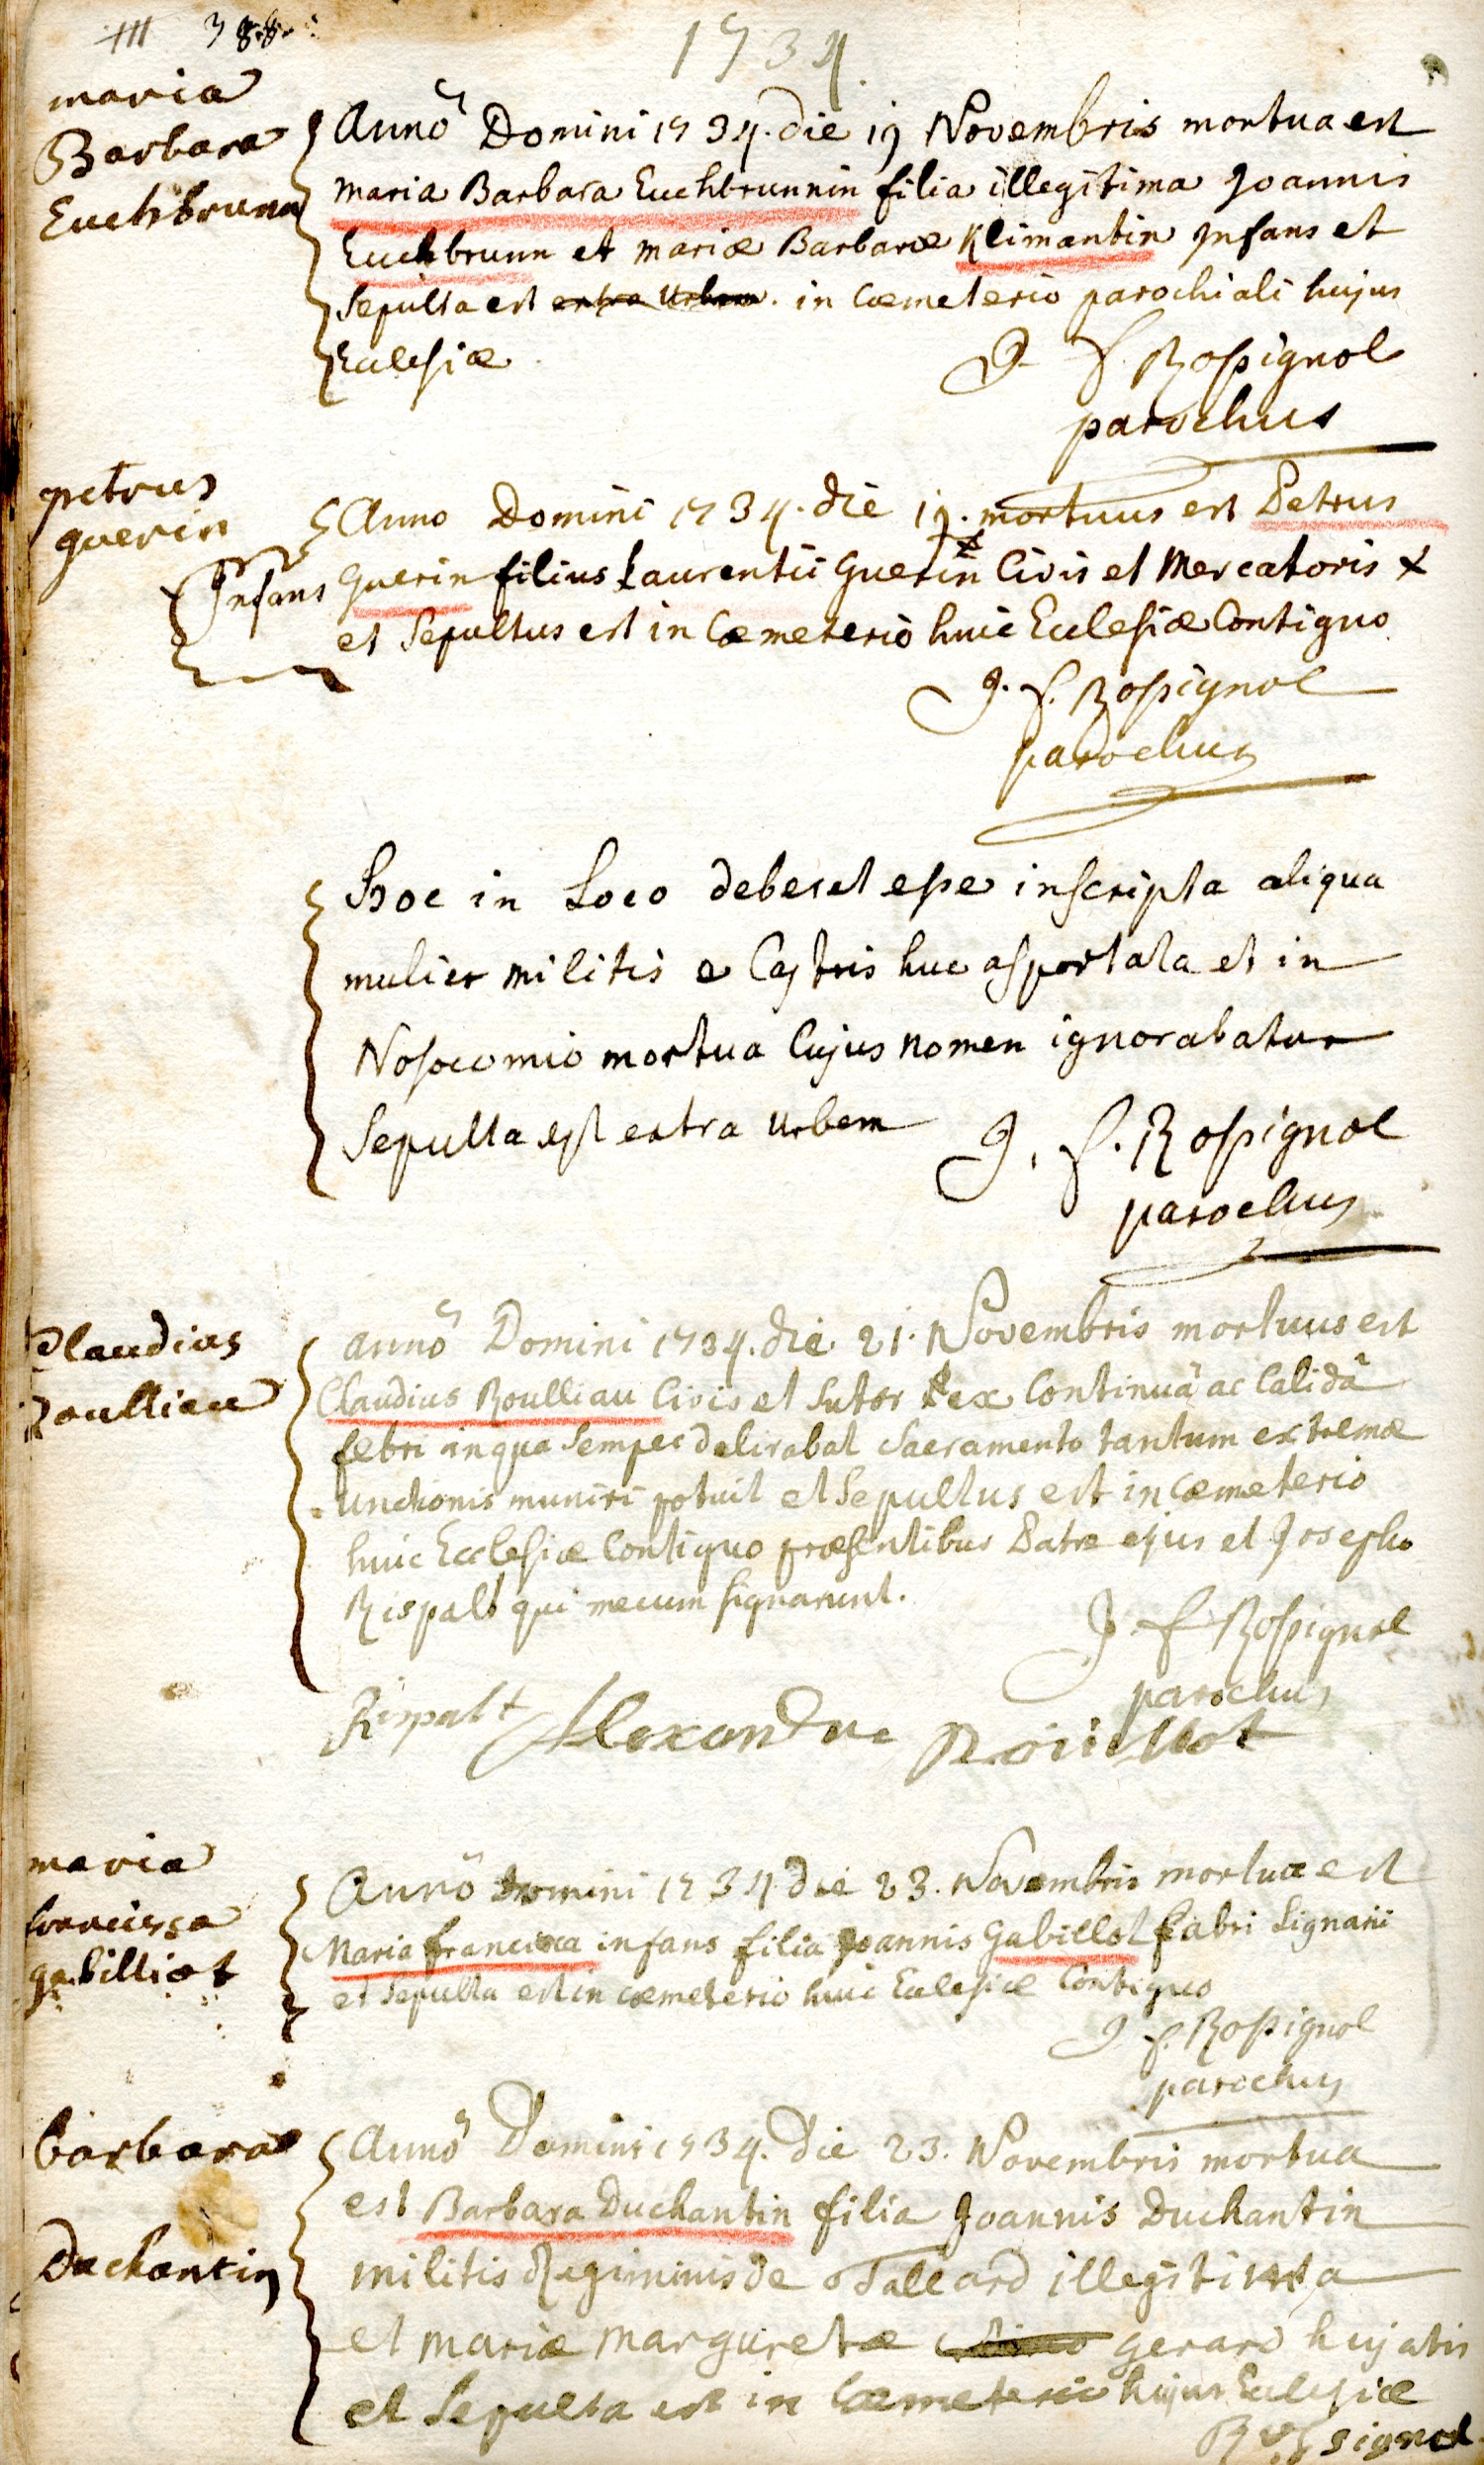 388
1734
maria
Barbara
Euchbrunn
Annô Domini 1734. die 19 Novembris mortua est
Maria Barbara Euchbrunnin filia illegitima Joannis
Euchbrunn et mariæ Barbaræ Klimantin Infans et
Sepulta est extra Urbem. in Cœmeterio parochiali hujus
Ecclesiæ
J f. Rossignol
parochus
petrus
guerin
Infans
Anno Domini 1734. die 19. mortuus est Petrus
Guerin filius Laurentii Guerin Civis et Mercatoris x
et Sepultus est in Cœmeterio huic Ecclesiæ Contiguo
J. f. Rossignol
parochus
Hoc in Loco deberet esse inscripta aliqua
mulier militis e Castris huc asportata et in
Nosocomio mortua Cujus nomen ignorabatur
Sepulta est extra Urbem
J. f. Rossignol
parochus
Claudius
Roulliau
annô Domini 1734. die 21. Novembris mortuus est
Claudius Roulliau Civis et Sutor ex Continuâ ac Calidâ
febri in qua Semper delirabat Sacramento tantum extremæ
unctionis muniri potuit et Sepultus est in Cœmeterio
huic Ecclesiæ Contiguo præsentibus Patre ejus et Josepho
Rispalt qui mecum signarunt.
J f Rossignol
parochus
Rispalt Alexandre Roüillot
maria
francisca
gabilliot
Annô Domini 1734 die 23. Novembris mortua est
Maria francisca infans filia Joannis Gabillot fabri Lignarii
et Sepulta est in cœmeterio huic Ecclesiæ Contiguo
J f. Rossignol
parochus
barbara
Duchantin
Annô Domini 1734. Die 23. Novembris mortua
est Barbara Duchantin filia Joannis Duchantin
militis Regiminis de Tallard illegitima
et mariæ Margaretæ gerard hujatis
et Sepulta est in Cœmeterio hujus Ecclesiæ
Rossignol